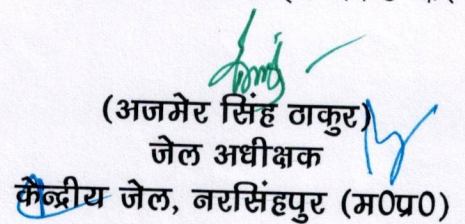 (अजमेर सिंह ठाकुर)
जेल अधीक्षक
केन्द्रीय जेल, नरसिंहपुर (म0प्र0)